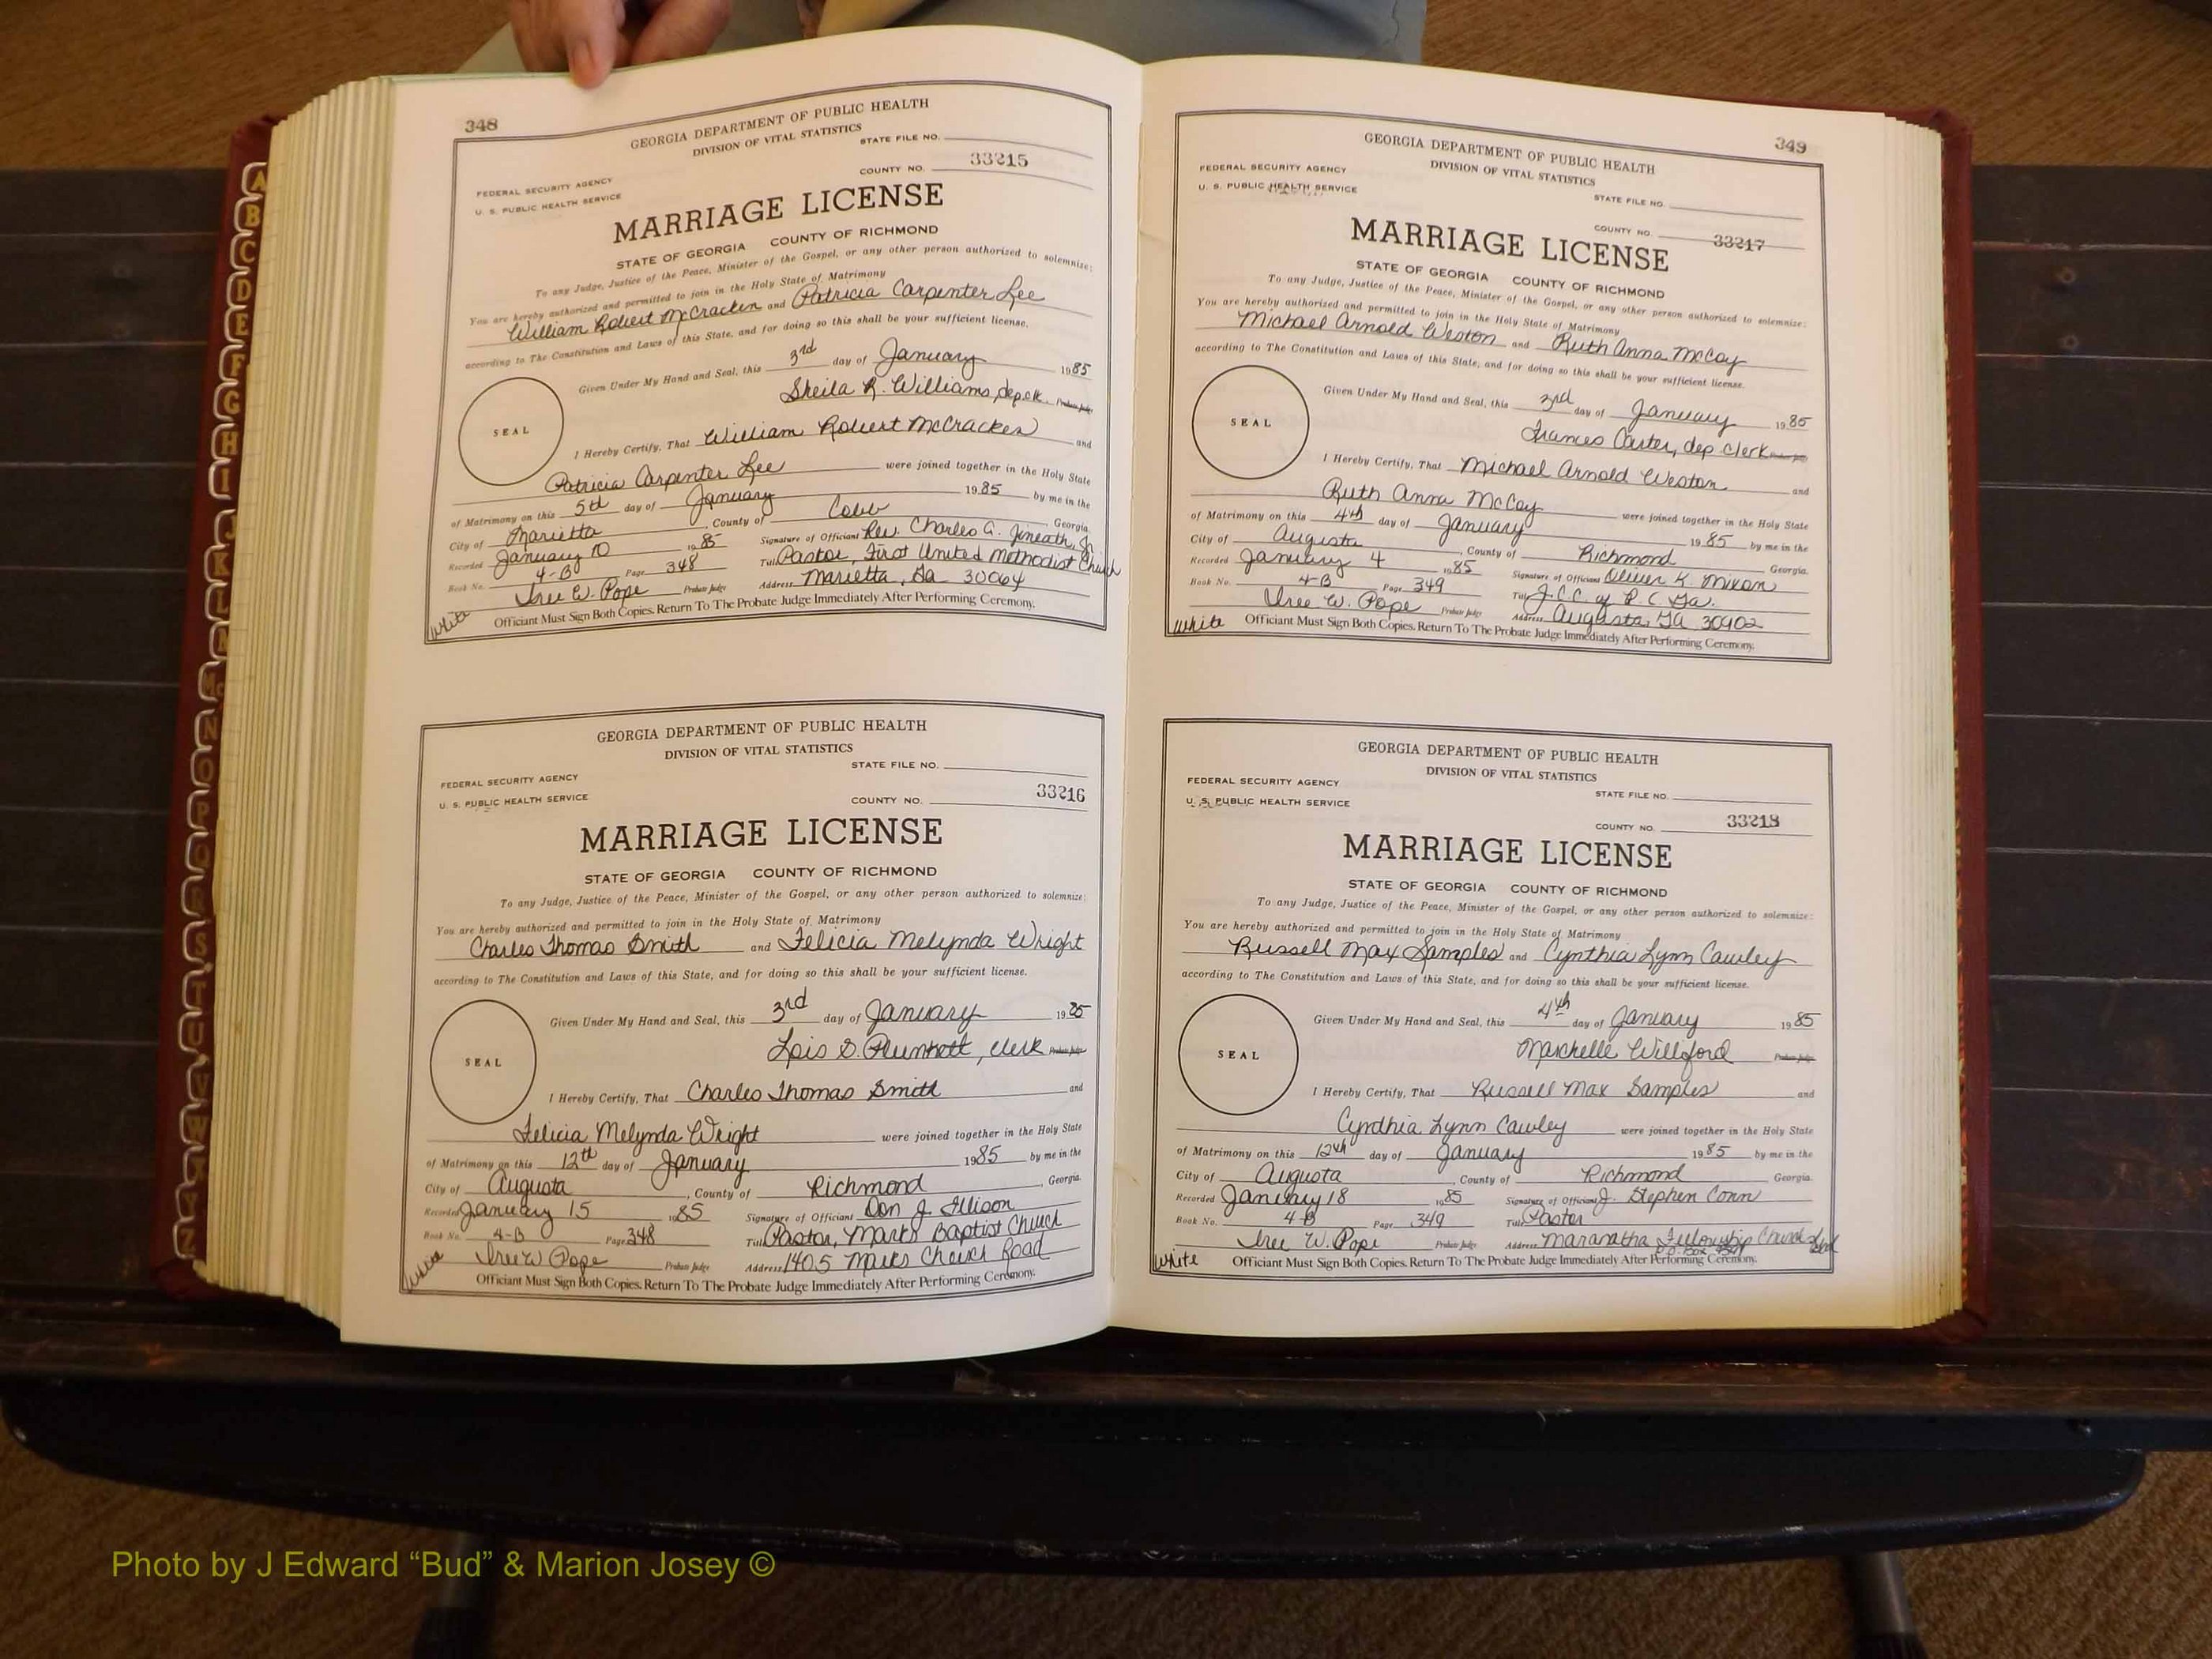 348
GEORGIA DEPARTMENT OF PUBLIC HEALTH
DIVISION OF VITAL STATISTICS
STATE FILE NO.
COUNTY NO. 33215
FEDERAL SECURITY AGENCY
U. S. PUBLIC HEALTH SERVICE
MARRIAGE LICENSE
STATE OF GEORGIA COUNTY OF RICHMOND
To any Judge, Justice of the Peace, Minister of the Gospel, or any other person authorized to solemnize:
You are hereby authorized and permitted to join in the Holy State of Matrimony
William Robert McCracken and Patricia Carpenter Lee
according to The Constitution and Laws of this State, and for doing so this shall be your sufficient license.
Given Under My Hand and Seal, this 3rd day of January 1985
Sheila R. Williams, dep. clk. Probate Judge
SEAL
I Hereby Certify, That William Robert McCracken and
Patricia Carpenter Lee were joined together in the Holy State
of Matrimony on this 5th day of January 1985 by me in the
City of Marietta, County of Cobb, Georgia.
Recorded January 10 1985 Signature of Officiant Rev. Charles G. Jr.
Book No. 4-B Page 348 Title Pastor, First United Methodist Church
Iree W. Pope Probate Judge Address Marietta, Ga 30064
white Officiant Must Sign Both Copies. Return To The Probate Judge Immediately After Performing Ceremony.
GEORGIA DEPARTMENT OF PUBLIC HEALTH
DIVISION OF VITAL STATISTICS
STATE FILE NO.
FEDERAL SECURITY AGENCY
U. S. PUBLIC HEALTH SERVICE
COUNTY NO. 33216
MARRIAGE LICENSE
STATE OF GEORGIA COUNTY OF RICHMOND
To any Judge, Justice of the Peace, Minister of the Gospel, or any other person authorized to solemnize:
You are hereby authorized and permitted to join in the Holy State of Matrimony
Charles Thomas Smith and Felicia Melynda Wright
according to The Constitution and Laws of this State, and for doing so this shall be your sufficient license.
Given Under My Hand and Seal, this 3rd day of January 1985
Lois S. Plunkett, clerk Probate Judge
SEAL
I Hereby Certify, That Charles Thomas Smith and
Felicia Melynda Wright were joined together in the Holy State
of Matrimony on this 12th day of January 1985 by me in the
City of Augusta, County of Richmond, Georgia.
Recorded January 15 1985 Signature of Officiant Don J. Ellison
Book No. 4-B Page 348 Title Pastor, Marks Baptist Church
Iree W Pope Probate Judge Address 1405 Marks Church Road
white Officiant Must Sign Both Copies. Return To The Probate Judge Immediately After Performing Ceremony.
349
GEORGIA DEPARTMENT OF PUBLIC HEALTH
DIVISION OF VITAL STATISTICS
FEDERAL SECURITY AGENCY
U. S. PUBLIC HEALTH SERVICE
STATE FILE NO.
COUNTY NO. 33217
MARRIAGE LICENSE
STATE OF GEORGIA COUNTY OF RICHMOND
To any Judge, Justice of the Peace, Minister of the Gospel, or any other person authorized to solemnize:
You are hereby authorized and permitted to join in the Holy State of Matrimony
Michael Arnold Weston and Ruth Anna McCoy
according to The Constitution and Laws of this State, and for doing so this shall be your sufficient license.
Given Under My Hand and Seal, this 3rd day of January 1985
Frances Carter, dep clerk Probate Judge
SEAL
I Hereby Certify, That Michael Arnold Weston and
Ruth Anna McCoy were joined together in the Holy State
of Matrimony on this 4th day of January 1985 by me in the
City of Augusta, County of Richmond Georgia.
Recorded January 4 1985 Signature of Officiant Oliver K. Mixon
Book No. 4-B Page 349 Title J.C.C. of R.C. Ga.
Iree W. Pope Probate Judge Address Augusta, Ga 30902
white Officiant Must Sign Both Copies. Return To The Probate Judge Immediately After Performing Ceremony.
GEORGIA DEPARTMENT OF PUBLIC HEALTH
DIVISION OF VITAL STATISTICS
FEDERAL SECURITY AGENCY
U. S. PUBLIC HEALTH SERVICE
STATE FILE NO.
COUNTY NO. 33218
MARRIAGE LICENSE
STATE OF GEORGIA COUNTY OF RICHMOND
To any Judge, Justice of the Peace, Minister of the Gospel, or any other person authorized to solemnize:
You are hereby authorized and permitted to join in the Holy State of Matrimony
Russell Max Samples and Cynthia Lynn Cawley
according to The Constitution and Laws of this State, and for doing so this shall be your sufficient license.
Given Under My Hand and Seal, this 4th day of January 1985
Marchelle Williford Probate Judge
SEAL
I Hereby Certify, That Russell Max Samples and
Cynthia Lynn Cawley were joined together in the Holy State
of Matrimony on this 12th day of January 1985 by me in the
City of Augusta County of Richmond Georgia.
Recorded January 18 1985 Signature of Officiant J. Stephen Conn
Book No. 4-B Page 349 Title Pastor
Iree W. Pope Probate Judge Address Maranatha Fellowship Church of God
P.O. Box
white Officiant Must Sign Both Copies. Return To The Probate Judge Immediately After Performing Ceremony.
A
B
C
D
E
F
G
H
I
J
K
L
M
Mc
N
O
P
Q
R
S
T
U
V
W
Y
Z
Photo by J Edward “Bud” & Marion Josey ©